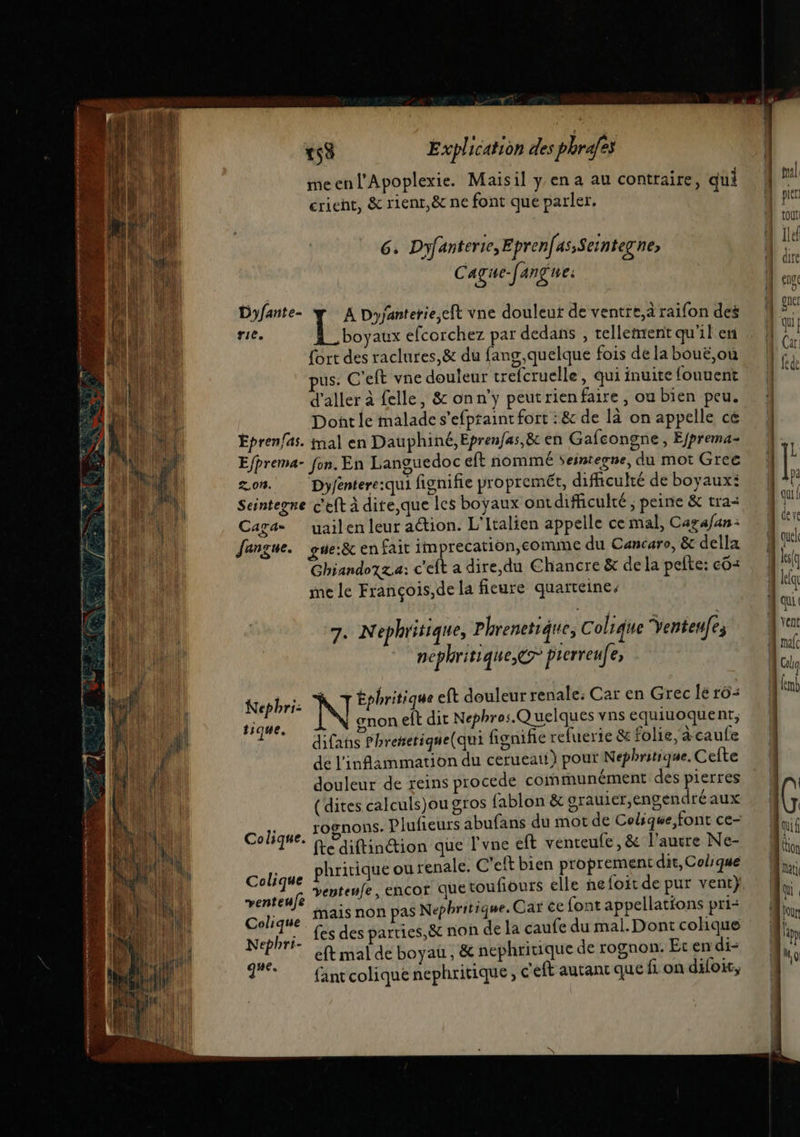 158 Explication des phraſes
me en l'Apoplexie. Mais il y en a au contraire, qui
crient, & rient, & ne font que parler.
6. Dyſanterie, Eprenſas, Seintegne,
Cague-ſangue.
Dyſante-
rie.
LA Dyſanterie, eſt vne douleur de ventre, à raiſon des
boyaux eſcorchez par dedans, tellement qu'il en
ſort des raclures, & du ſang, quelque fois de la bouë, ou
pus. C'eſt vne douleur treſcruelle, qui inuite ſouuent
d'aller à ſelle, & on n'y peut rien faire, ou bien peu.
Dont le malade s'eſpraint fort : & de là on appelle ce
Eprenſas. mal en Dauphiné, Eprenſas, & en Gaſcongne, Eſprema-
Eſprema- ſon. En Languedoc eſt nommé Seintegne, du mot Grec
zon. Dyſentere: qui ſignifie propremẽt, difficulté de boyaux:
Seintegne c'eſt à dire, que les boyaux ont difficulté, peine & tra-
Caga- uail en leur action. L'Italien appelle ce mal, Cagaſan-
ſangue. gue: & en fait imprecation, comme du Cancaro, & della
Ghiandozza: c'eſt a dire, du Chancre & de la peſte: cõ-
me le François, de la fieure quarteine.
7. Nephritique, Phrenetique, Colique Venteuſe,
nephritique, & pierreuſe,
Nephri-
tique.
NEphritique eſt douleur renale. Car en Grec le ro-
gnon eſt dit Nephros. Quelques vns equiuoquent,
diſans Phrenetique (qui ſignifie reſuerie & folie, à cauſe
de l'inflammation du cerueau) pour Nephritique. Ceſte
douleur de reins procede communément des pierres
(dites calculs) ou gros ſablon & grauier, engendré aux
rognons. Pluſieurs abuſans du mot de Colique, font ce-
Colique. ſte diſtinction que l'vne eſt venteuſe, & l'autre Ne-
phritique ou renale. C'eſt bien proprement dit, Colique
Colique venteuſe, encor que touſiours elle ne ſoit de pur vent)
venteuſe mais non pas Nephritique. Car ce ſont appellations pri-
Colique ſes des parties, & non de la cauſe du mal. Dont colique
Nephri- eſt mal de boyau, & nephritique de rognon. Et en di-
que. ſant colique nephritique, c'eſt autant que ſi on diſoit,